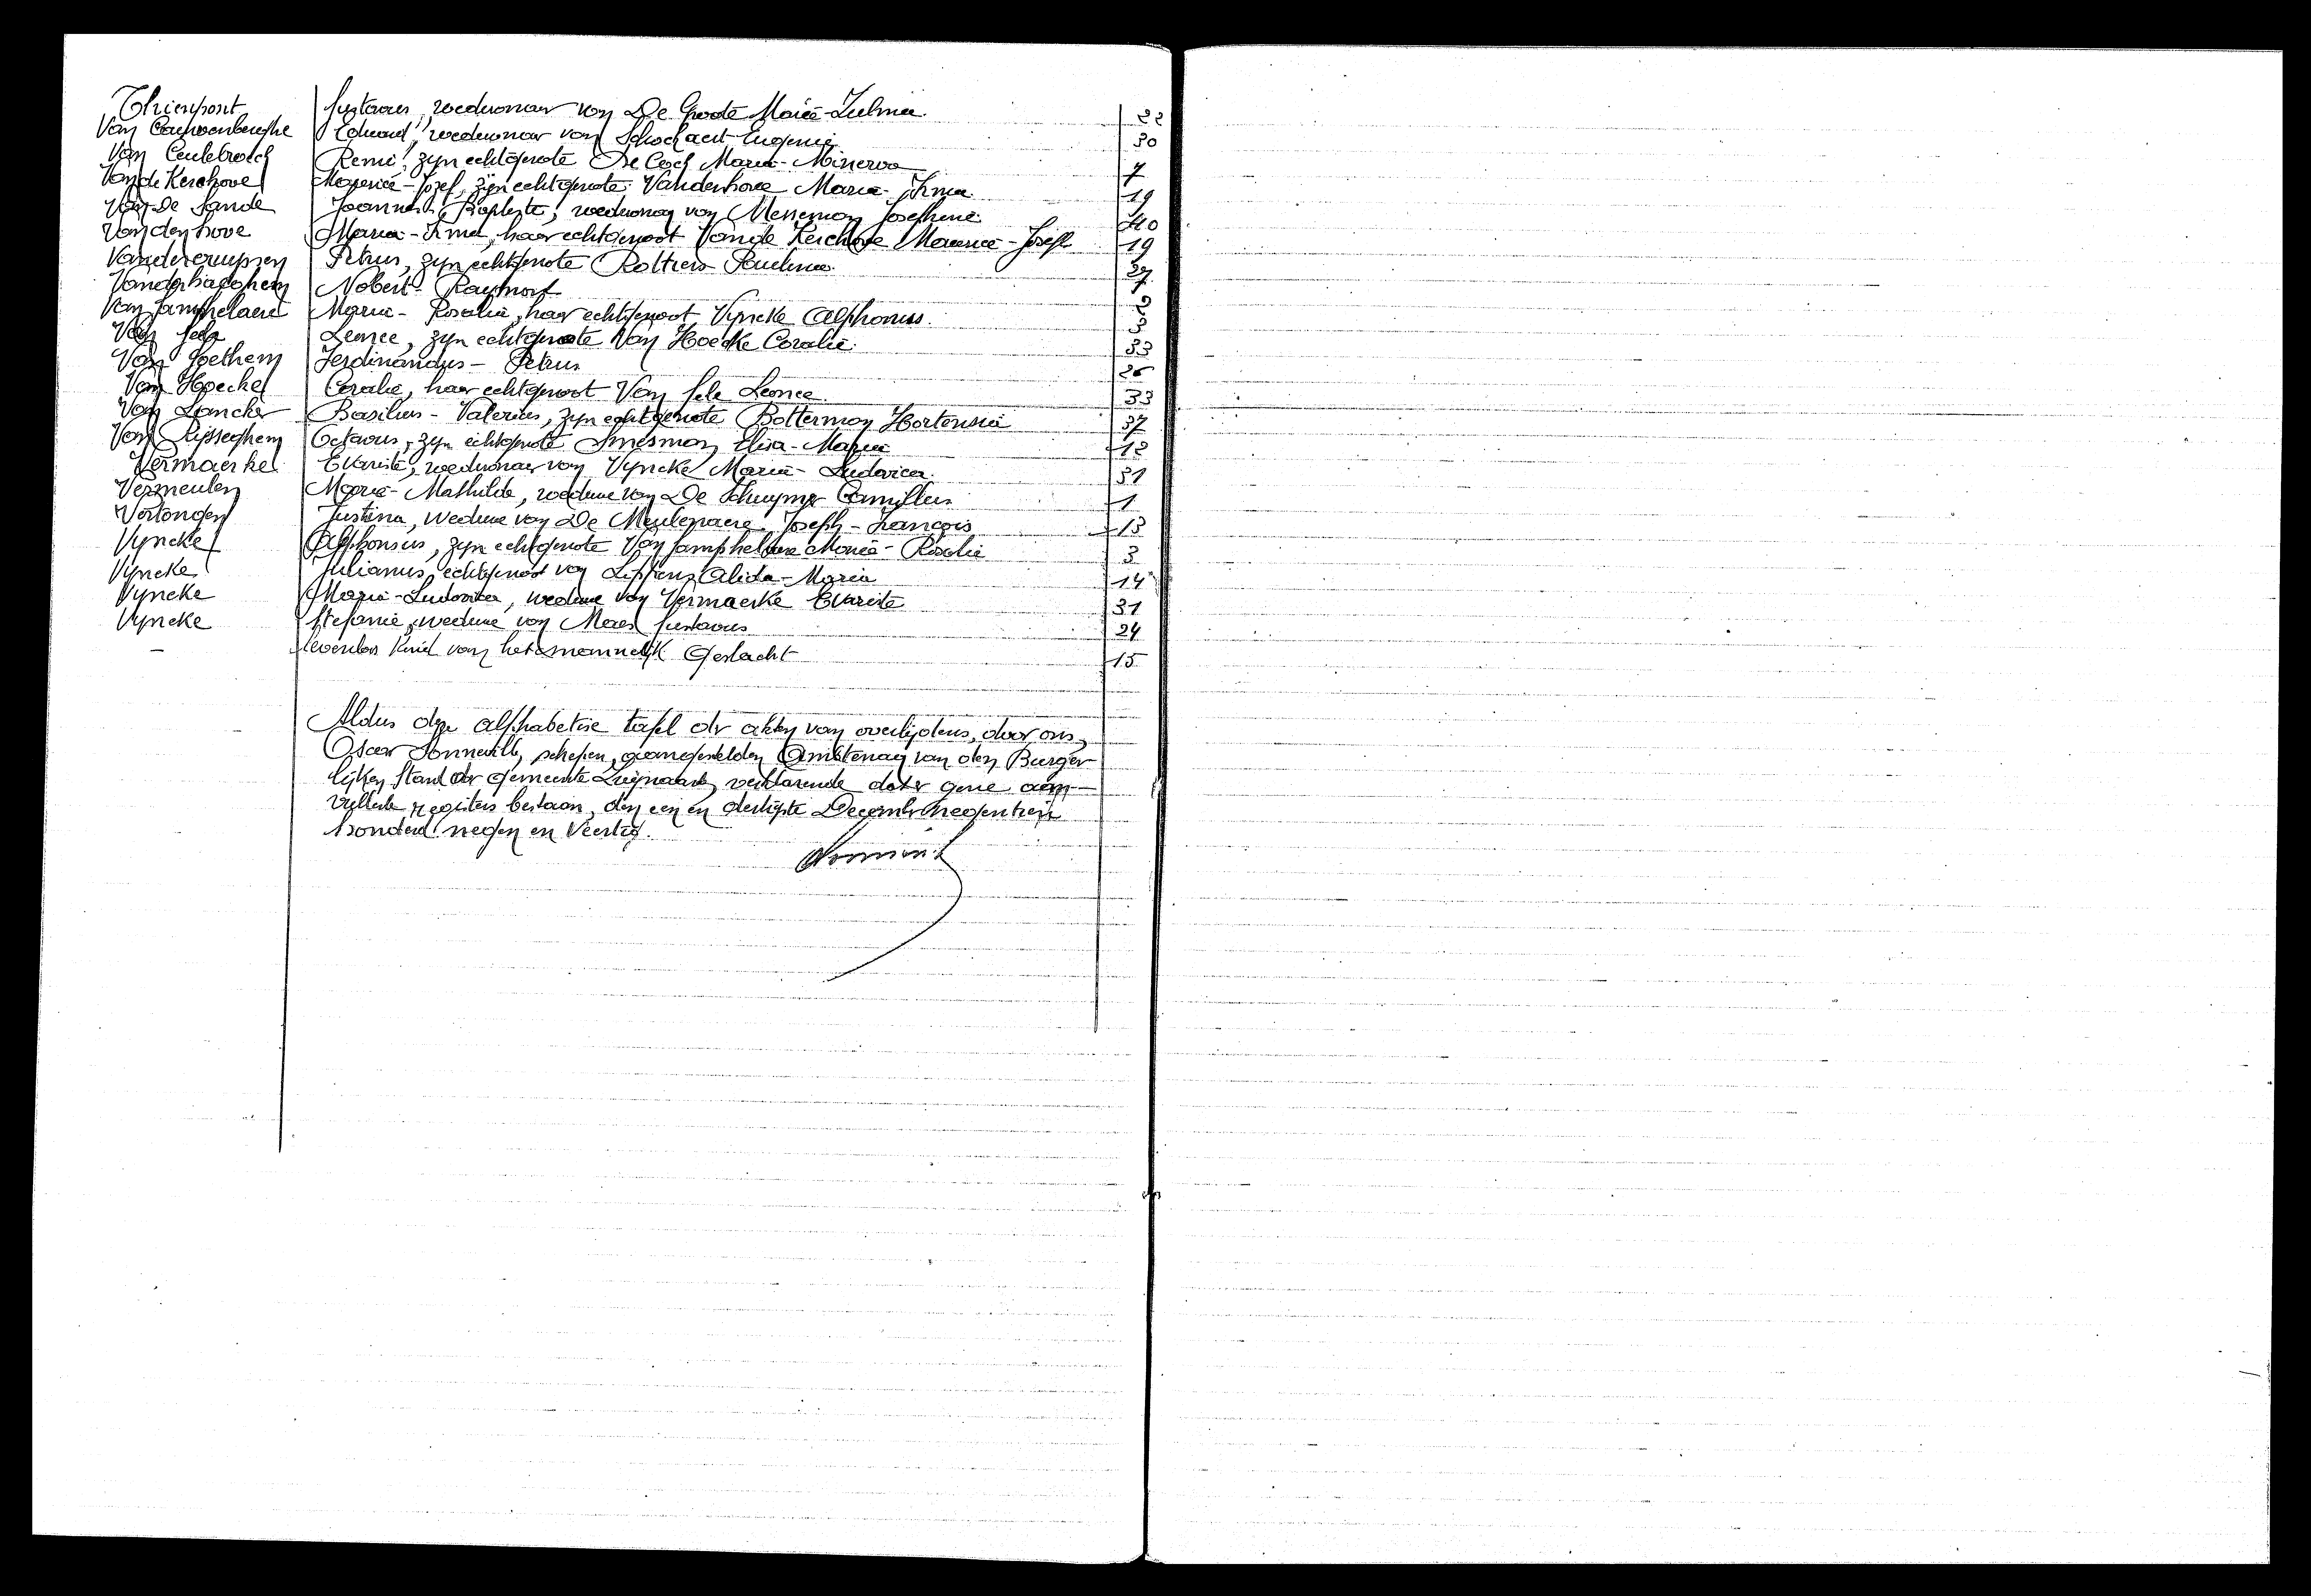 Thienpont Gustavus, weduwnaar van De Groote Marie-Zulma. 22
Van Cauwenberghe Eduard, weduwnaar van Schockaert Eugenie 30
Van Ceulebroeck Remi, zijn echtgenote De Cock Maria-Minerva 7
Van de Kerchove Maurice-Jozef, zijn echtgenote Vandenhove Maria-Irma 19
Van De Sande Joannes-Baptiste, weduwnaar van Messeman Josephine 40
Vandenhove Maria-Irma, haar echtgenoot Van de Kerchove Maurice-Josef 19
Vandercruyssen Petrus, zijn echtgenote Rottiers Paulina. 27
Vanderhaeghen Nobert-Raymond
Van Jamphelaere Maria-Rosalia, haar echtgenoot Vyncke Alphonsus. 3
Van Sele Leonce, zijn echtgenote Van Hoecke Coralie. 33
Van Goethem Ferdinandus-Petrus 26
Van Hoecke Coralie, haar echtgenoot Van Sele Leonce. 33
Van Lancker Basilius-Valerius, zijn echtgenote Botterman Hortensia 37
Van Rysseghem Octavus, zijn echtgenote Smesman Elisa-Maria 12
Vermaerke Evariste, weduwnaar van Vyncke Maria-Ludovica. 31
Vermeulen Maria-Mathilde, weduwe van De Schuymer Camillus 1
Vertongen Justina, weduwe van De Meulenaere Joseph-François 13
Vyncke Alphonsus, zijn echtgenote Van Jamphelaere Maria-Rosalie 3
Vyncke Julianus, echtgenoot van Lippens Alida-Maria 14
Vyncke Maria-Ludovica, weduwe van Vermaerke Evariste 31
Vyncke Stefanie, weduwe van Maes Gustavus 24
- levenloos Kind van het mannelijk Geslacht 15
Aldus den alphabetise tafel der akten van overlijdens, door ons,
Oscar Sonneville, schepen, aangestelden Ambtenaar van den Burger-
lijken Stand der Gemeente Zwijnaarde, verklarende dat er gene aan-
vullende registers bestaan, den een en dertigste December negentien
honderd negen en Veertig.